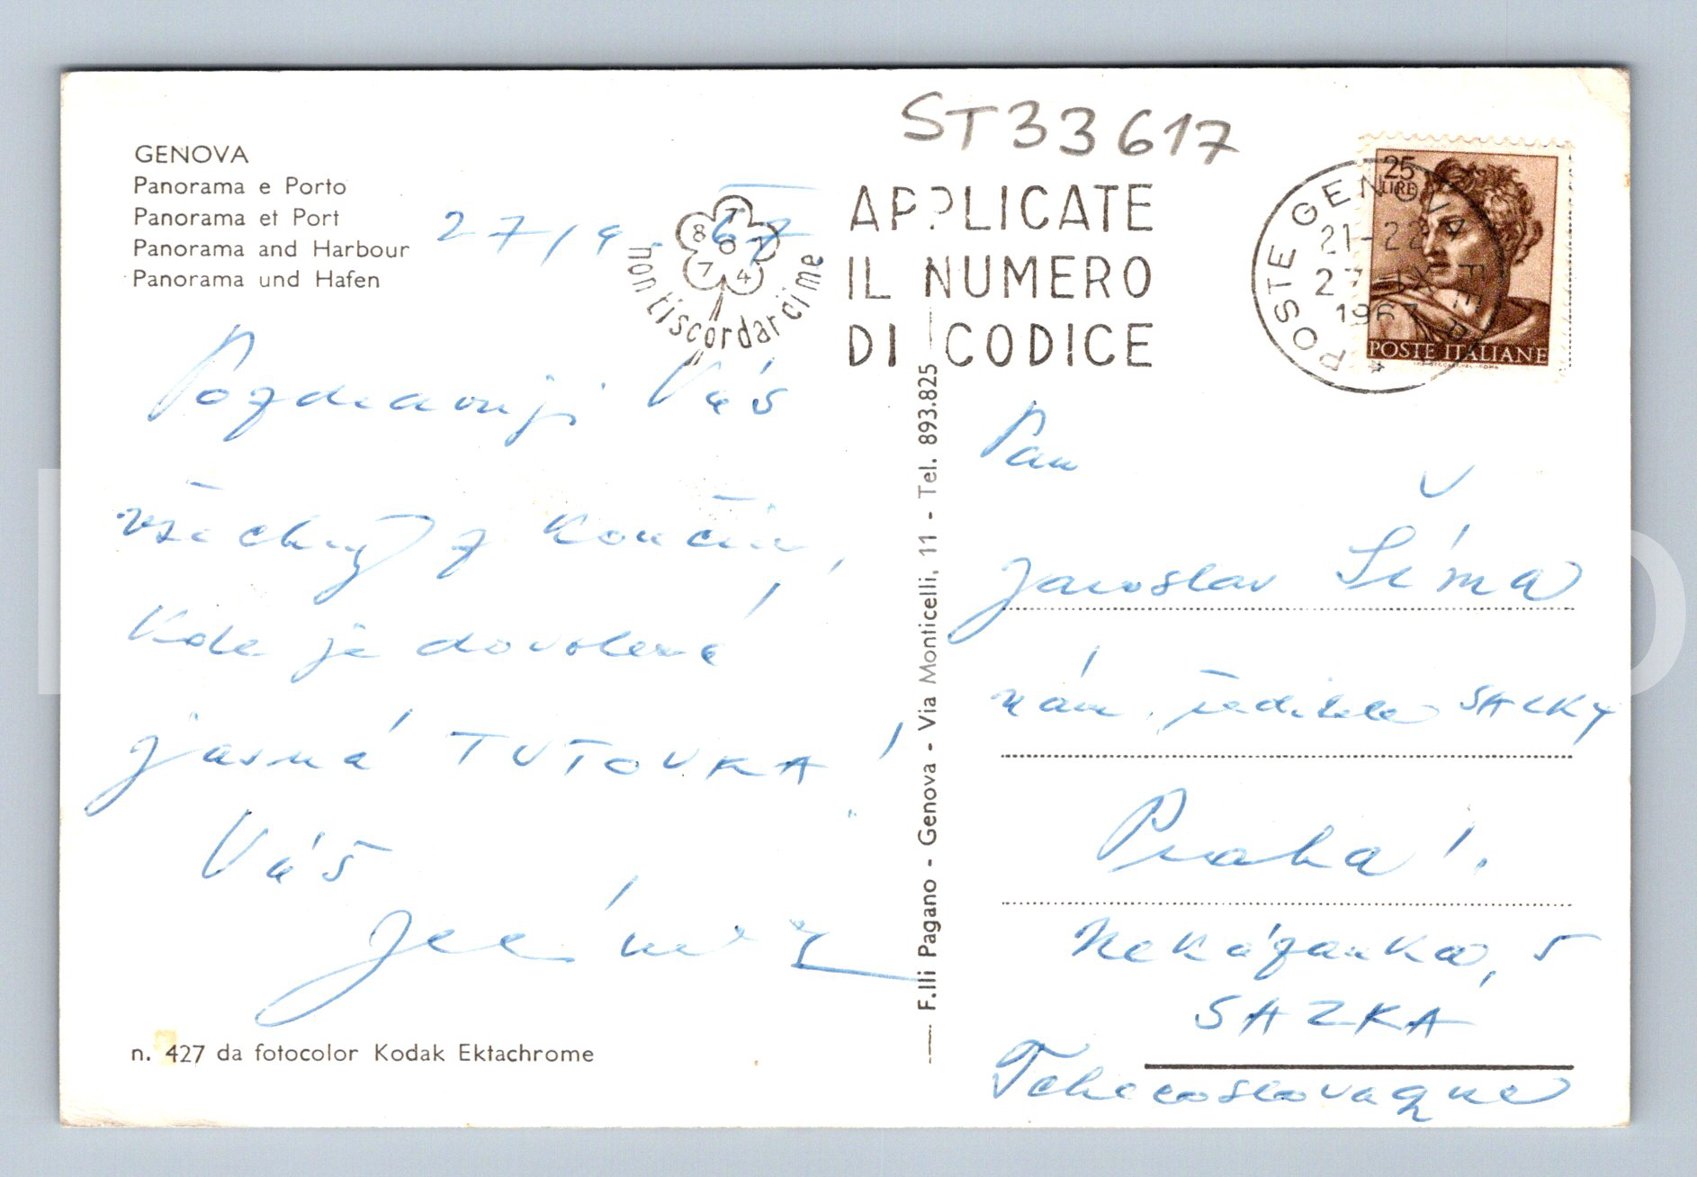 ST33617
GENOVA
Panorama e Porto
Panorama et Port
Panorama and Harbour
Panorama und Hafen
27/9. 67
non ti scordar di me
APPLICATE
IL NUMERO
DI CODICE
POSTE GENOVA FERR.
21-22
27 IX
1967
25
LIRE
POSTE ITALIANE
Pozdravuji Vás
všechny z končin,
kde je dovolená
jasná TUTOVKA!
Váš
n. 427 da fotocolor Kodak Ektachrome
F.lli Pagano - Genova - Via Monticelli, 11 - Tel. 893.825
Pan
Jaroslav Šíma
nám. ředitele SAZKY
Praha 1.
Nekázanka, 5
SAZKA
Tchecoslovaque